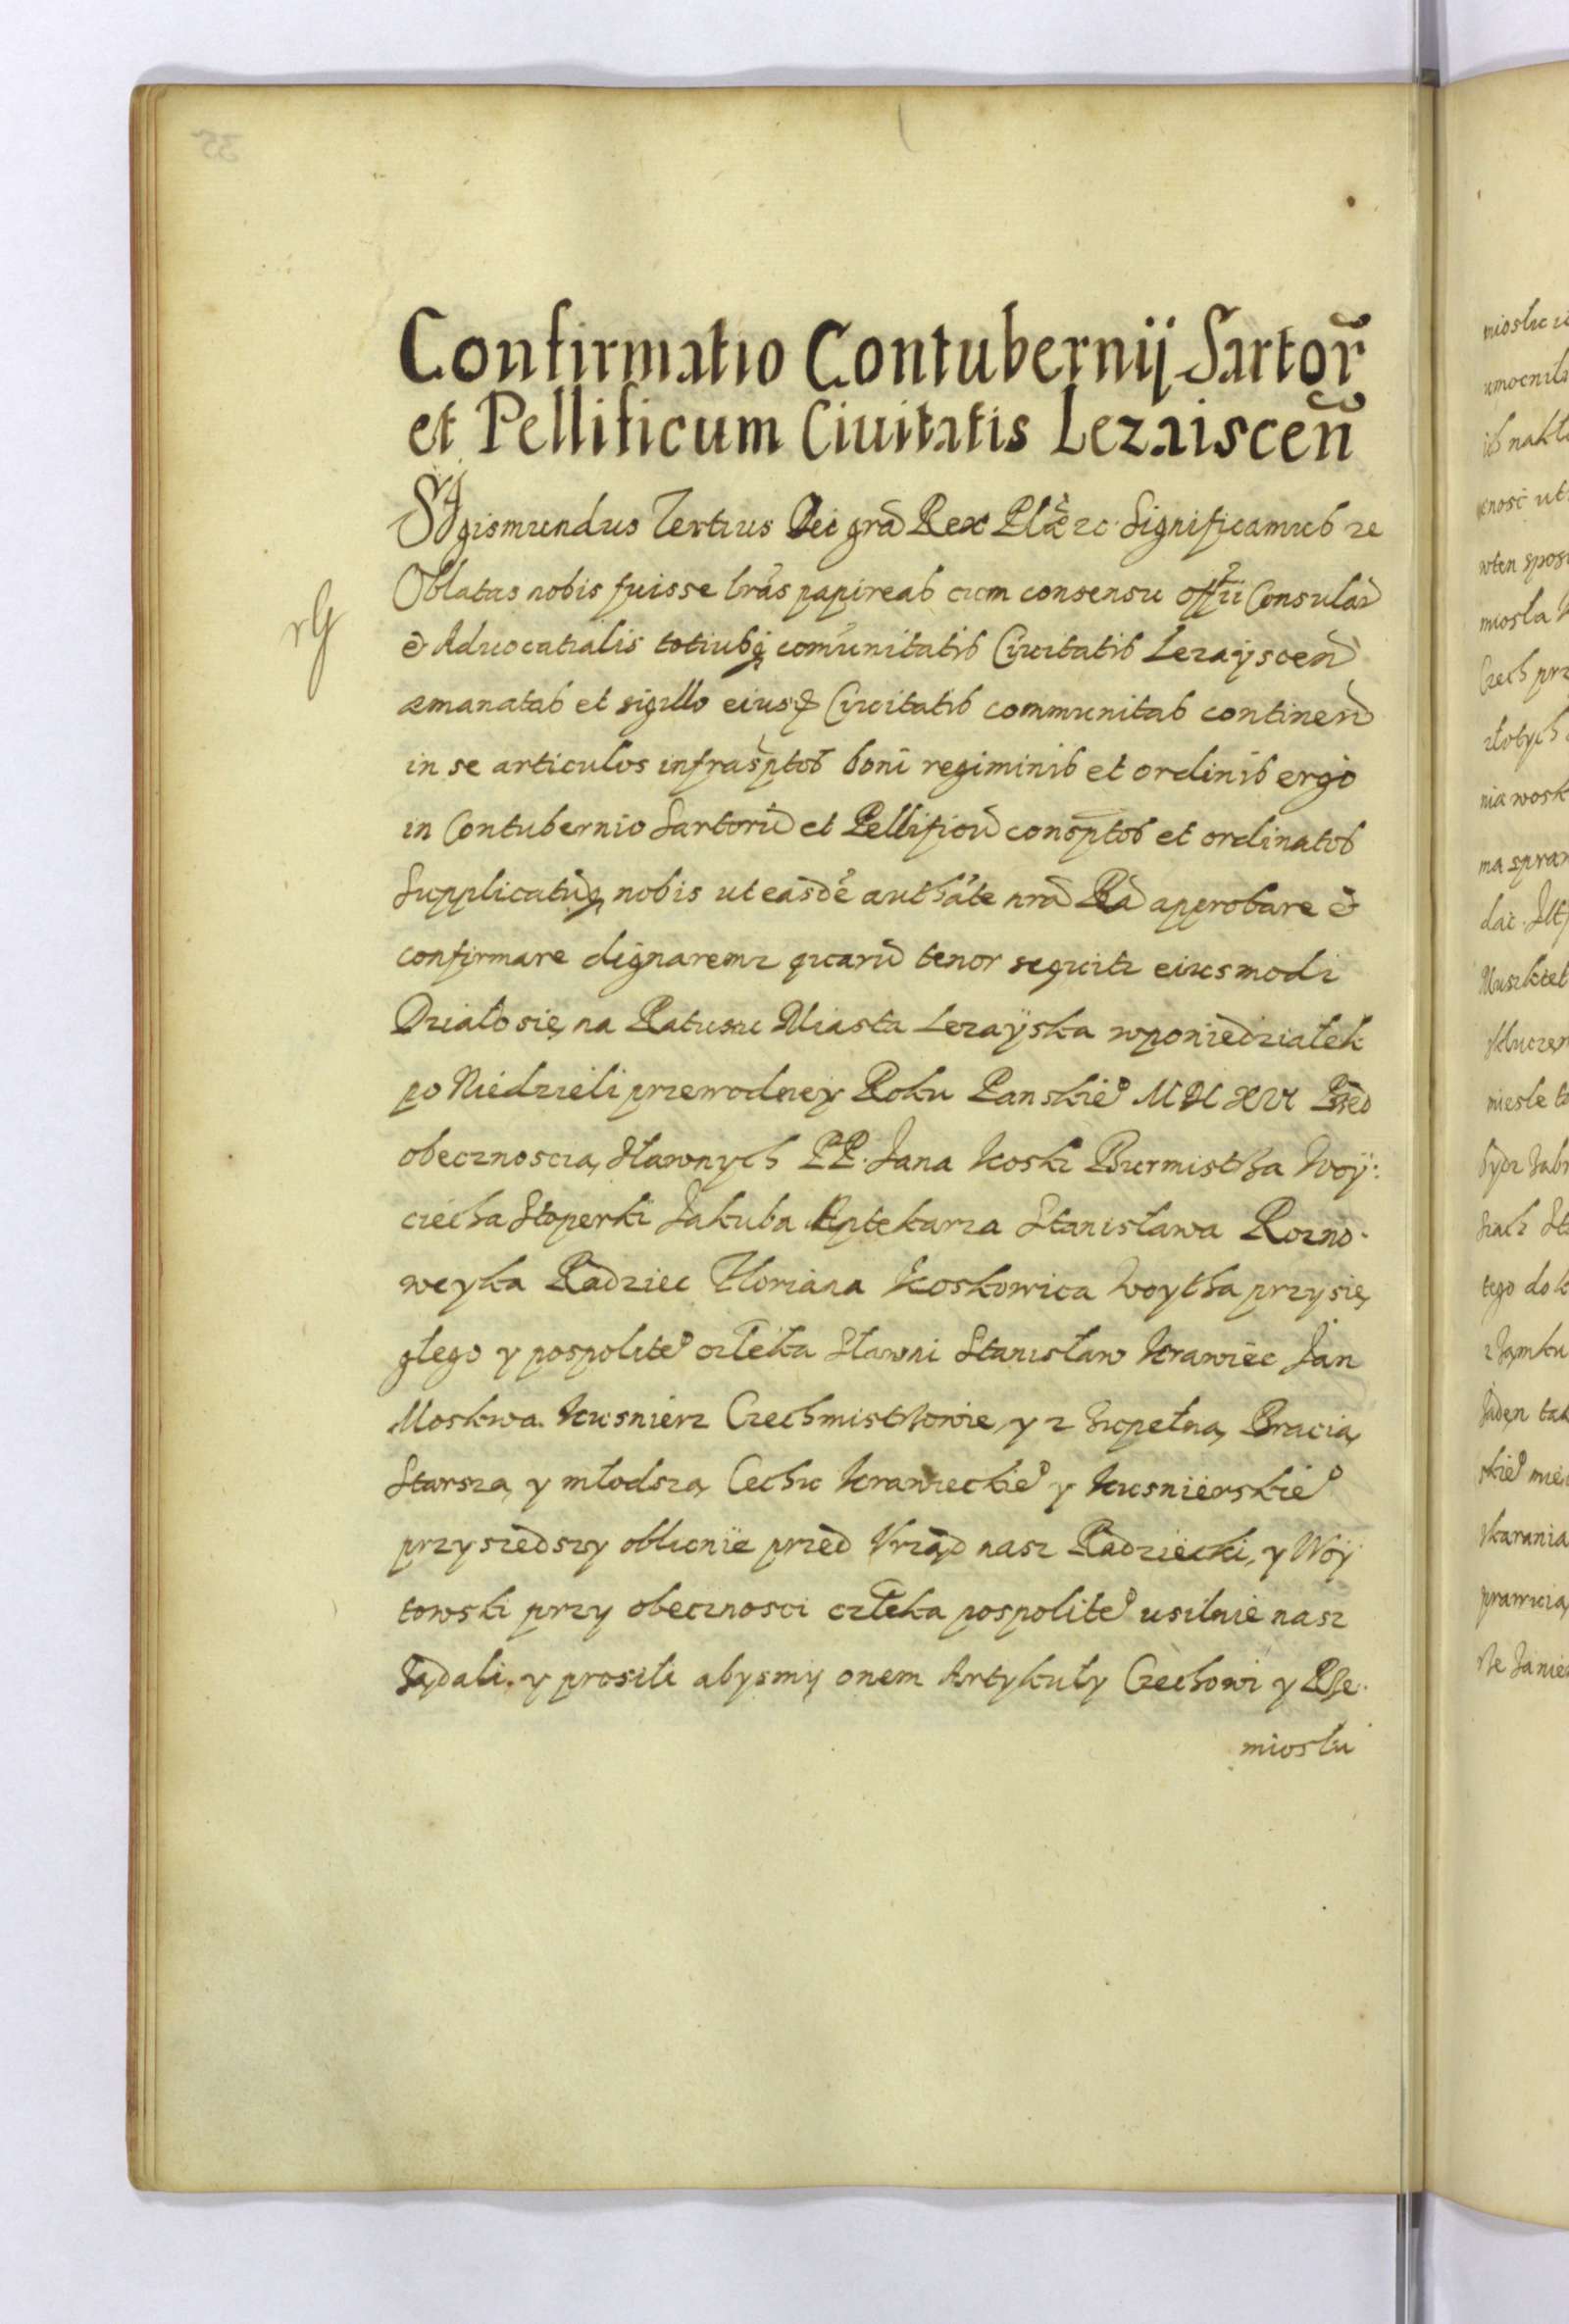 Confirmatio Contubernij Sartor̃
et Pellificum Ciuitatis Lezaiscen̄
Sigismundus Tertius Dei gra Rex Plæ zc Significamus zc
rG
Oblatas nobis fuisse lras papireas cum consensu offii Consular
& Aduocatialis totiusq comunitatis Ciuitatis Lezayscen
æmanatas et sigillo eiusd Ciuitatis communitas continen
in se articulos infrasptos boni regiminis et ordinis ergo
in Contubernio Sartoru et Pellificu consptos et ordinatos
Supplicatuq nobis ut easde authate nra Ra approbare &
confirmare dignaremz quaru tenor sequitz eiusmodi
Działo się na Ratuszu Miasta Lezayska wponiedziałek
po Niedzieli przewodney Roku Panskie° MDCXVI Pred
obecznoscią Sławnych PP. Jana Koski Burmistrza Woy:
ciecha Stoperki Jakuba Aptekarza Stanisława Rozno-
weyka Radziec Floriana Koskowica Woytha przysię
głego y pospolite° człeka Sławni Stanisław Krawiec Jan
Moskwa Kusnierz Czechmistrzowie y z zupełną Bracią
Starszą y młodszą Cechu Krawieckie° y Kusnierskie°
przyszedszy oblicnie przed Vrząd nasz Radziecki, y Woy
towski przy obecznosci człeka pospolite° usilnie nasz
Ządali y prosili abysmy onem Artykuły Czechowi y Rze-
miosłu